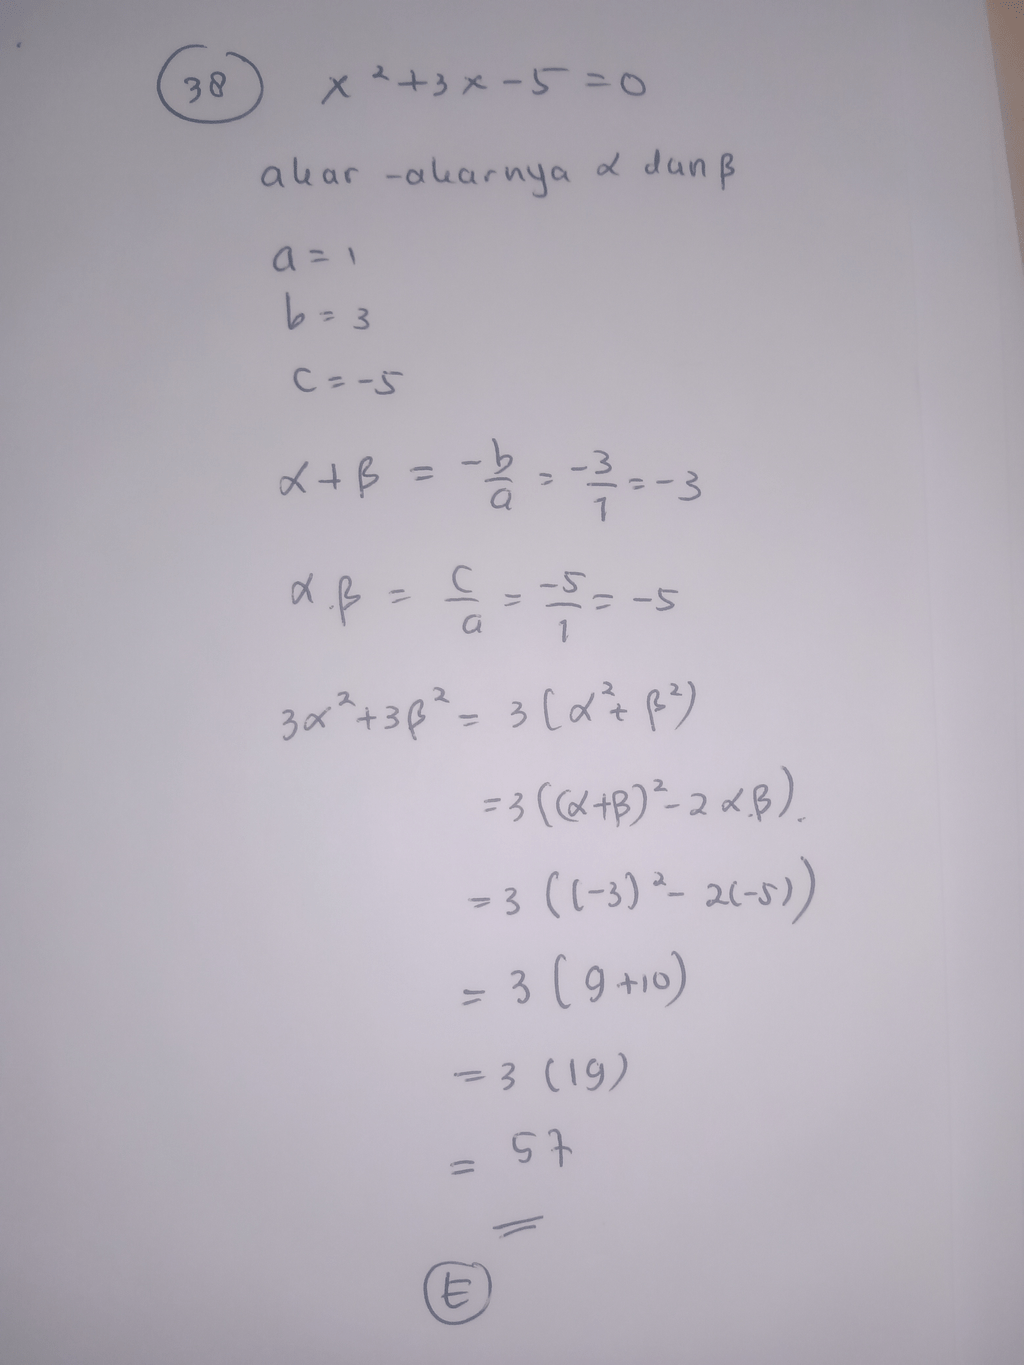 38 x² + 3x - 5 = 0
akar - akarnya α dan β
a = 1
b = 3
c = -5
α + β = -b/a = -3/1 = -3
α . β = c/a = -5/1 = -5
3α² + 3β² = 3 (α² + β²)
= 3 ((α + β)² - 2 α.β).
= 3 ((-3)² - 2(-5))
= 3 (9 + 10)
= 3 (19)
= 57
E